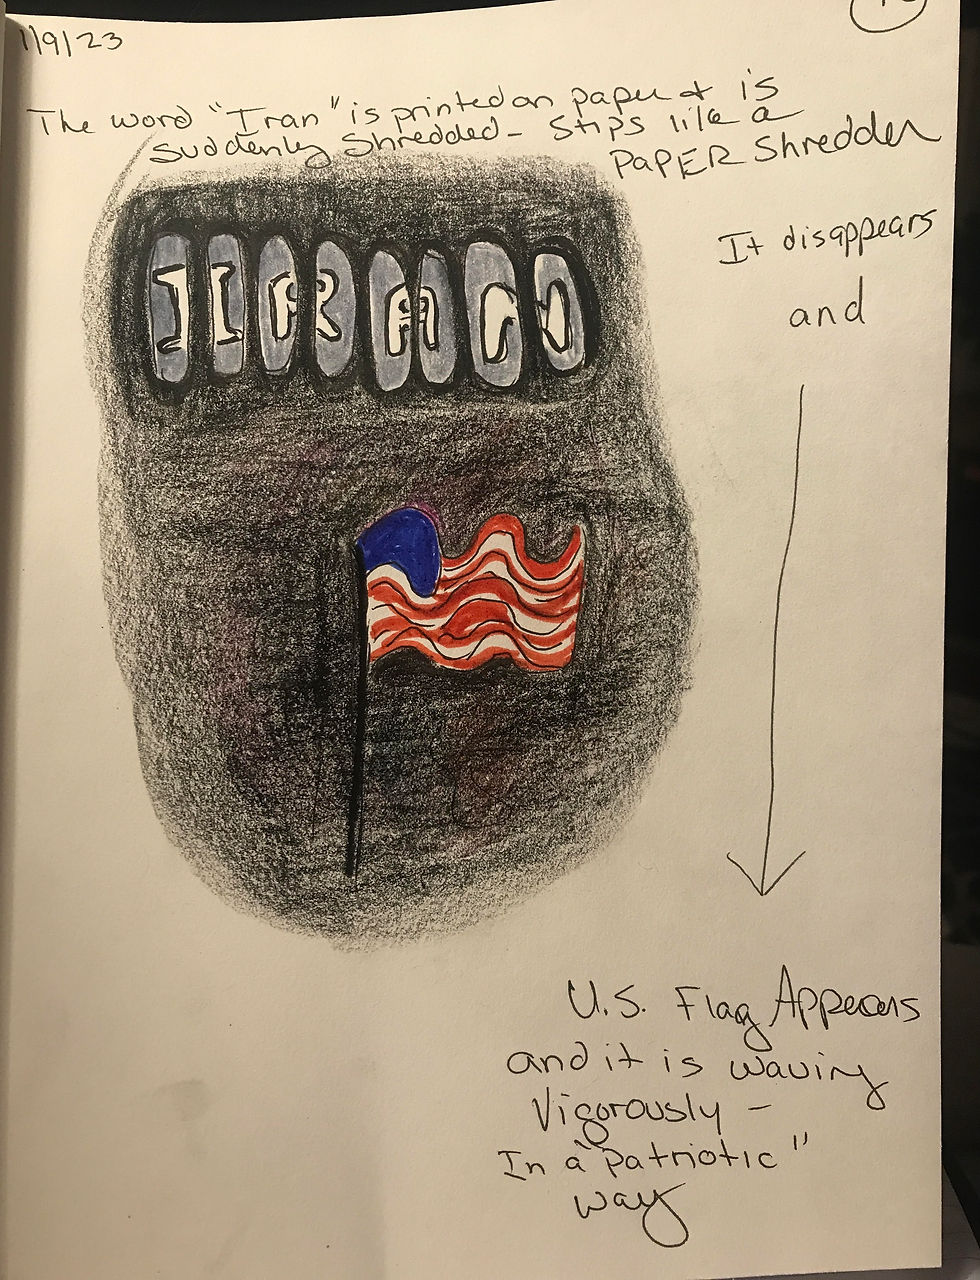 1/9/23
The word "Iran" is printed on paper & is
suddenly shredded - strips like a
PAPER Shredder
It disappears
and
IRAN
U.S. Flag Appears
and it is waving
Vigorously -
In a "patriotic"
way